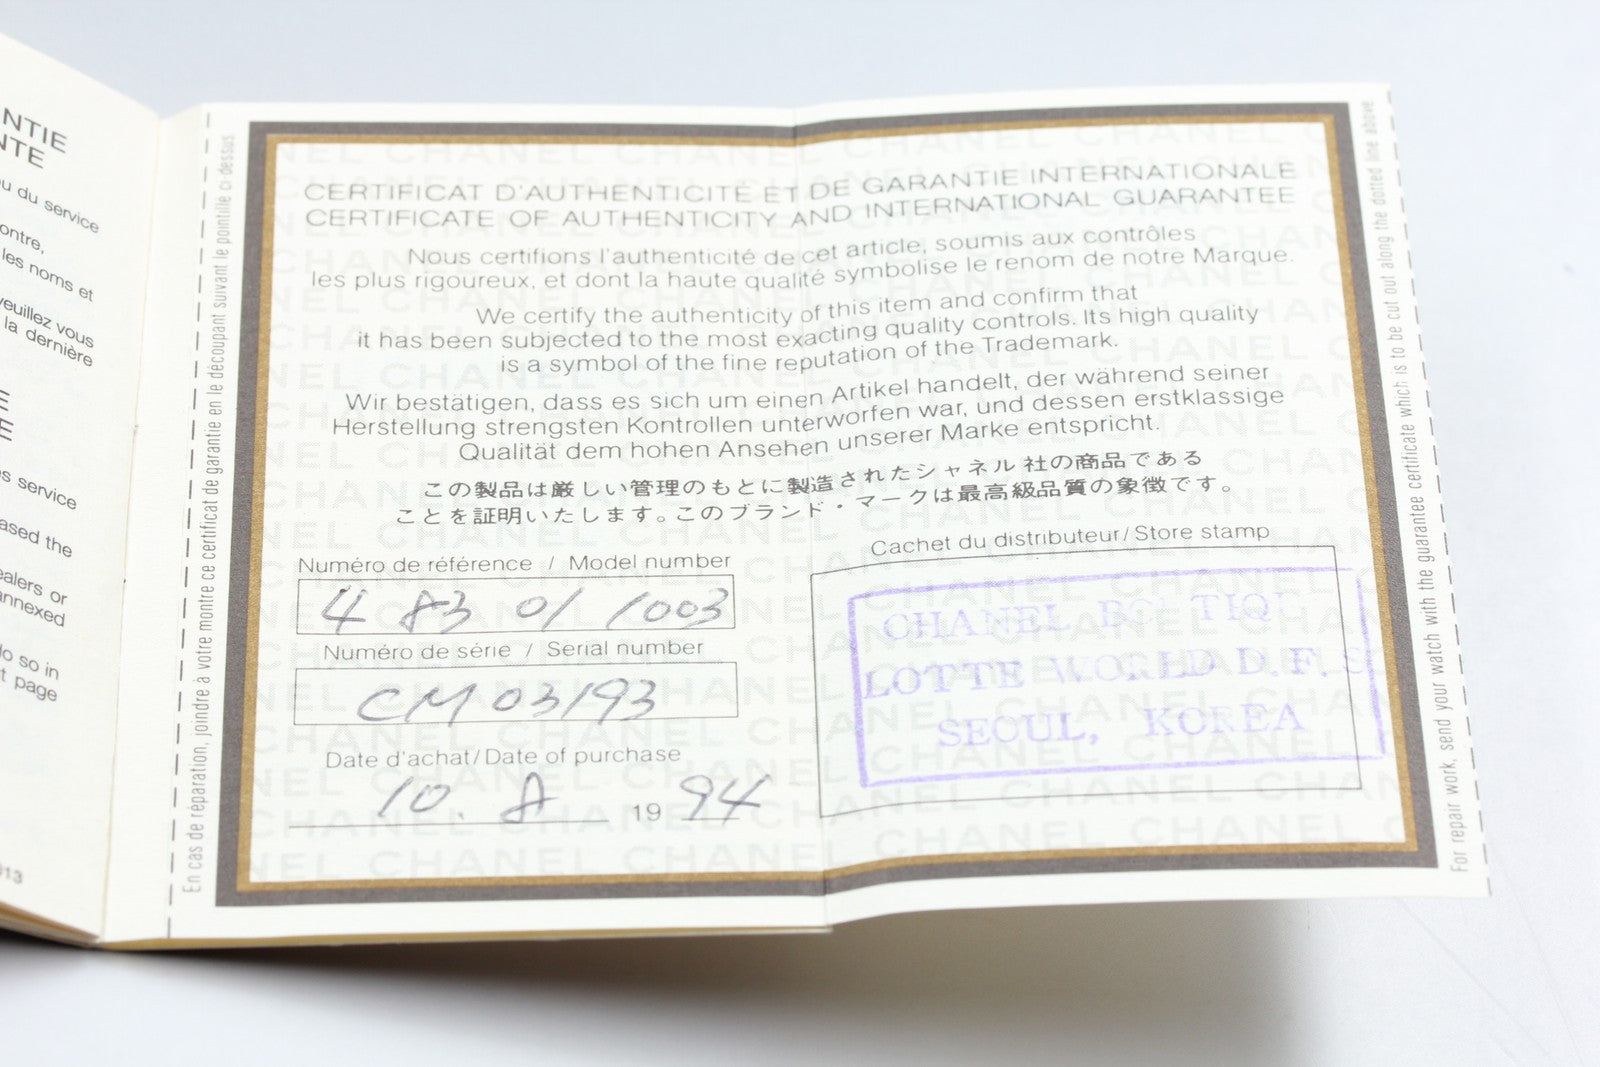 NTIE
NTE
u du service
ontre,
les noms et
veuillez vous
la dernière
E
E
s service
ased the
ealers or
annexed
do so in
t page
En cas de réparation, joindre à votre montre ce certificat de garantie en le découpant suivant le pointillé ci-dessus
CERTIFICAT D'AUTHENTICITÉ ET DE GARANTIE INTERNATIONALE
CERTIFICATE OF AUTHENTICITY AND INTERNATIONAL GUARANTEE
Nous certifions l'authenticité de cet article, soumis aux contrôles
les plus rigoureux, et dont la haute qualité symbolise le renom de notre Marque.
We certify the authenticity of this item and confirm that
it has been subjected to the most exacting quality controls. Its high quality
is a symbol of the fine reputation of the Trademark.
Wir bestätigen, dass es sich um einen Artikel handelt, der während seiner
Herstellung strengsten Kontrollen unterworfen war, und dessen erstklassige
Qualität dem hohen Ansehen unserer Marke entspricht.
この製品は厳しい管理のもとに製造されたシャネル社の商品である
ことを証明いたします。このブランド・マークは最高級品質の象徴です。
Numéro de référence / Model number
4 83 01 1003
Numéro de série / Serial number
CM 03193
Date d'achat/Date of purchase
10. 8 19 94
Cachet du distributeur/Store stamp
CHANEL BOUTIQU
LOTTE WORLD D.F.S
SEOUL, KOREA
For repair work, send your watch with the guarantee certificate which is to be cut out along the dotted line above